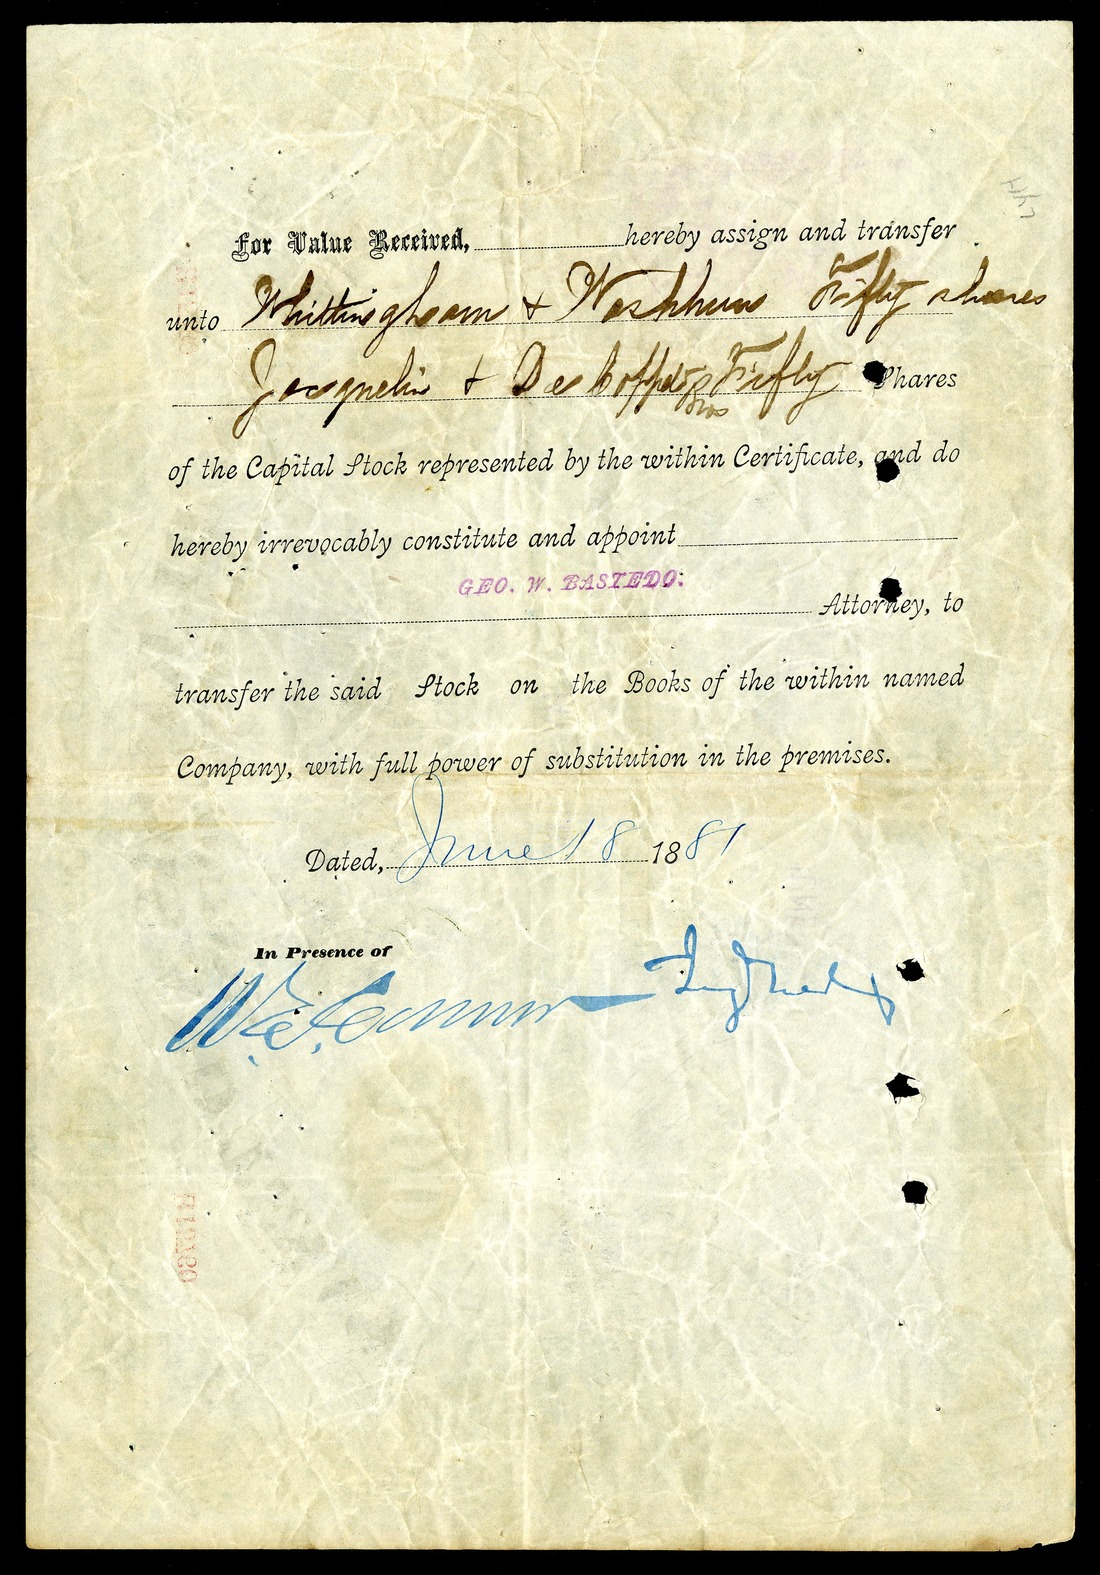 For Value Received, hereby assign and transfer
unto Whittingham & Washburn Fifty shares
Jacquelin & De Coppet Bros Fifty Shares
of the Capital Stock represented by the within Certificate, and do
hereby irrevocably constitute and appoint
GEO. W. BASTEDO.
Attorney, to
transfer the said Stock on the Books of the within named
Company, with full power of substitution in the premises.
Dated, June 18 1881
In Presence of
W. E. Connor